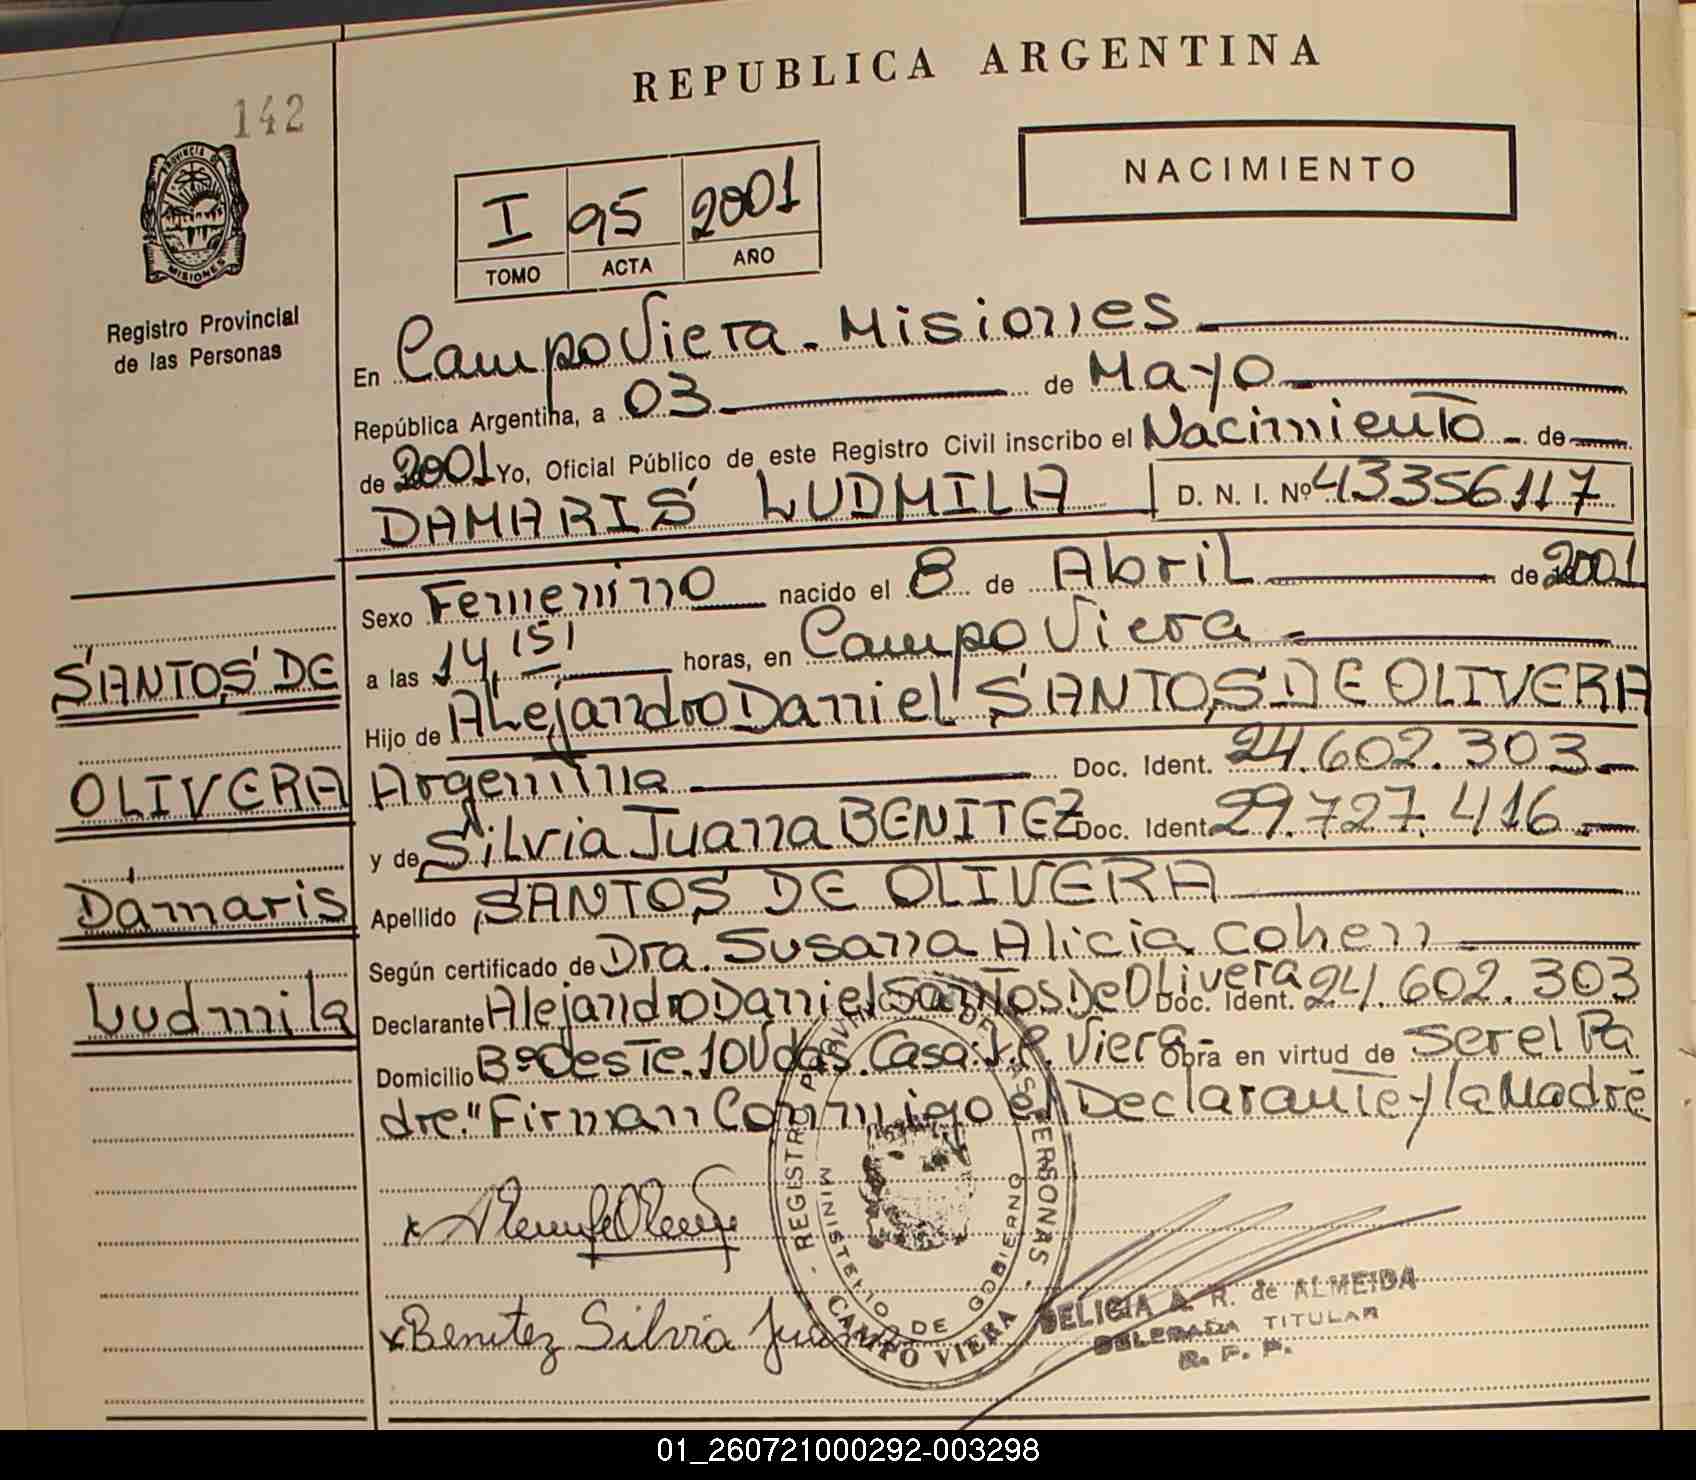 REPUBLICA ARGENTINA
142
NACIMIENTO
I 95 2001
TOMO ACTA AÑO
PROVINCIA DE
MISIONES
Registro Provincial
de las Personas
En Campo Viera - Misiones
República Argentina, a 03 de Mayo
de 2001 Yo, Oficial Público de este Registro Civil inscribo el Nacimiento de
DAMARIS LUDMILA D. N. I. Nº 43356117
Sexo Femenino nacido el 8 de Abril de 2001
a las 14,15 horas, en Campo Viera
Hijo de Alejandro Daniel SANTOS DE OLIVERA
Argentina Doc. Ident. 24.602.303
y de Silvia Juana BENITEZ Doc. Ident. 29.727.416
Apellido SANTOS DE OLIVERA
Según certificado de Dra. Susana Alicia Cohen
Declarante Alejandro Daniel Santos De Olivera Doc. Ident. 24.602.303
Domicilio Bº Oeste. 10 Vdas. Casa: Viera Obra en virtud de Ser el Pa
dre." Firman Conmigo el Declarante y la Madre
SANTOS DE
OLIVERA
Damaris
Ludmila
x
x Benitez Silvia Juana
REGISTRO PROVINCIAL DE LAS PERSONAS
MINISTERIO DE GOBIERNO
CAMPO VIERA
DELICIA A. R. de ALMEIDA
DELEGADA TITULAR
R. P. P.
01_260721000292-003298